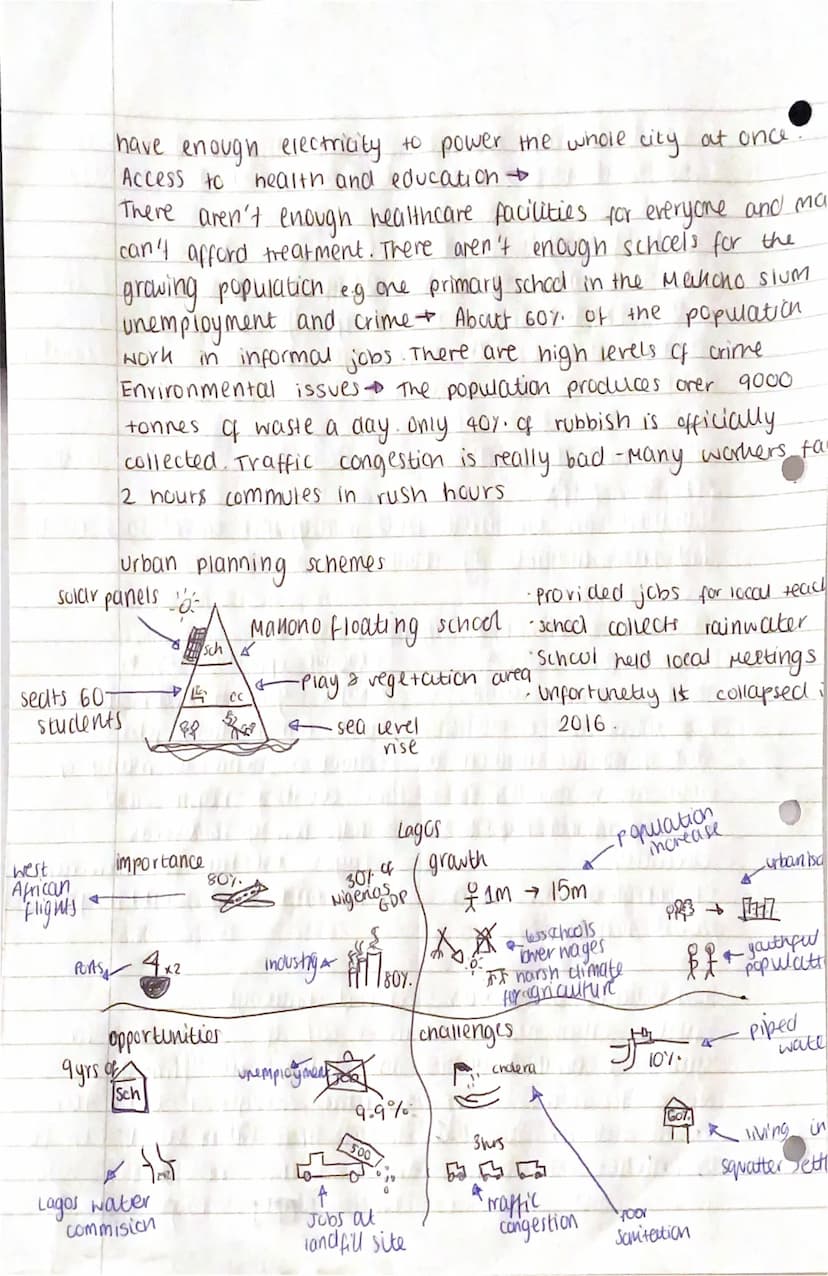 have enough electricity to power the whole city at once.
Access to health and education →
There aren't enough healthcare facilities for everyone and ma
can't afford treatment. There aren't enough schools for the
growing population eg one primary school in the Makono slum
unemployment and crime → About 60% of the population
work in informal jobs. There are high levels of crime
Environmental issues → The population produces over 9000
tonnes of waste a day. only 40% of rubbish is officially
collected. Traffic congestion is really bad - Many workers ta
2 hours commutes in rush hours
urban planning schemes
solar panels
sch
Makono floating school
play & vegetation area
seats 60
students
cc
sea level
rise
· Provided jobs for local teach
· school collects rainwater
· School held local meetings
· Unfortunetly it collapsed i
2016.
Lagos
importance
West
African
flights
80%
30% of
Nigerias
GDP
Ports
4 x2
industry
80%
growth
population
increase
1m → 15m
urbanisa
less schools
lower wages
harsh climate
for agriculture
youthful
populati
opportunities
9yrs of
Sch
unemployment
JOB
9.9%
Lagos water
commision
500
Jobs at
landfill site
challenges
cholera
piped
wate
10%
60%
living in
squatter settl
3hrs
traffic
congestion
poor
sanitation